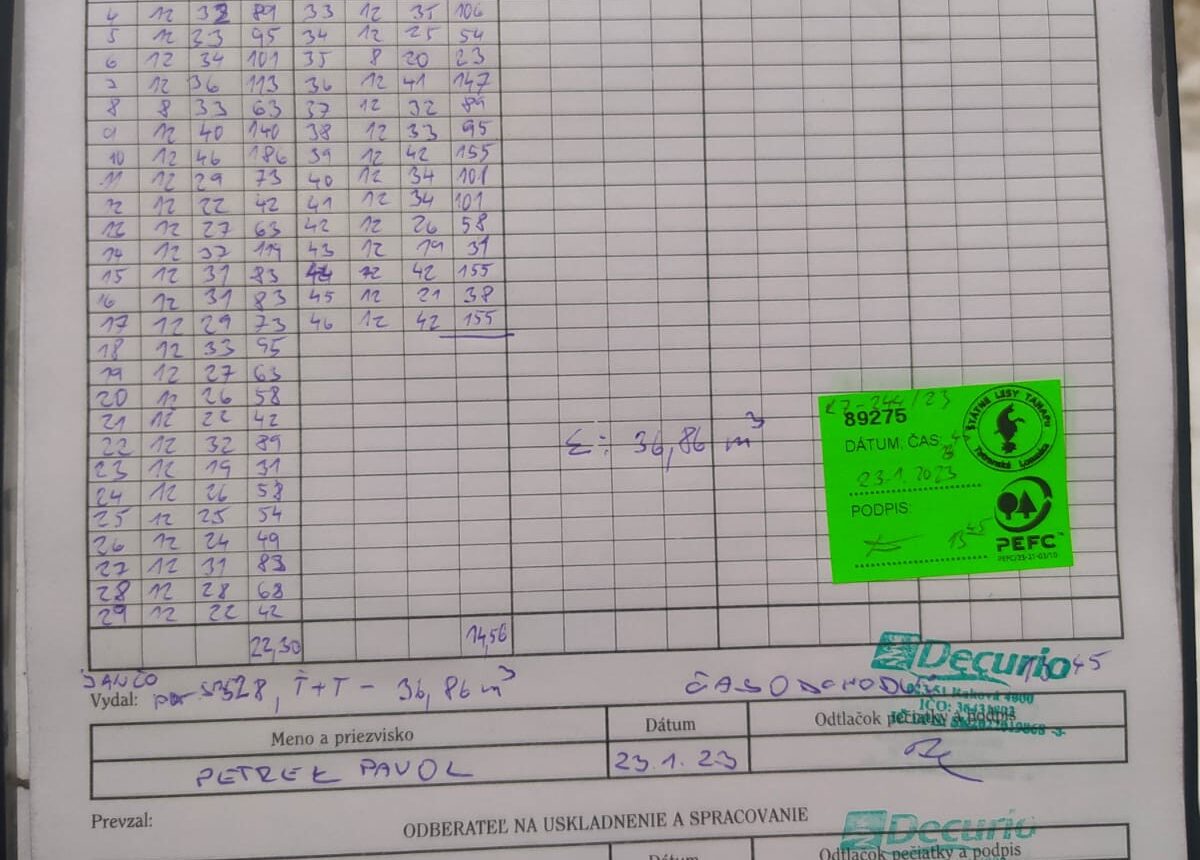 4 12 32 89 33 12 35 106
5 12 33 95 34 12 25 54
6 12 34 101 35 8 20 23
7 12 36 113 36 12 41 147
8 8 33 63 37 12 32 89
9 12 40 140 38 12 33 95
10 12 46 186 39 12 42 155
11 12 29 73 40 12 34 101
12 12 22 42 41 12 34 101
13 12 27 63 42 12 26 58
14 12 37 119 43 12 19 31
15 12 31 83 44 12 42 155
16 12 31 83 45 12 21 38
17 12 29 73 46 12 42 155
18 12 33 95
19 12 27 63
20 12 26 58
21 12 22 42
22 12 32 89
23 12 19 31
24 12 26 58
25 12 25 54
26 12 24 49
27 12 31 83
28 12 28 68
29 12 22 42
22,30 14,56
Σ: 36,86 m³
89275
DÁTUM, ČAS:
23.1.2023
PODPIS:
13 45
ŠTÁTNE LESY TANAPu
Tatranská Lomnica
PEFC
JANČO
Vydal: 528, Ť+T - 36,86 m³
ČAS ODCHODU 45
Decurio
Meno a priezvisko
Dátum
Odtlačok pečiatky a podpis
PETREK PAVOL
23.1.23
Prevzal:
ODBERATEĽ NA USKLADNENIE A SPRACOVANIE
Decurio
Dátum
Odtlačok pečiatky a podpis